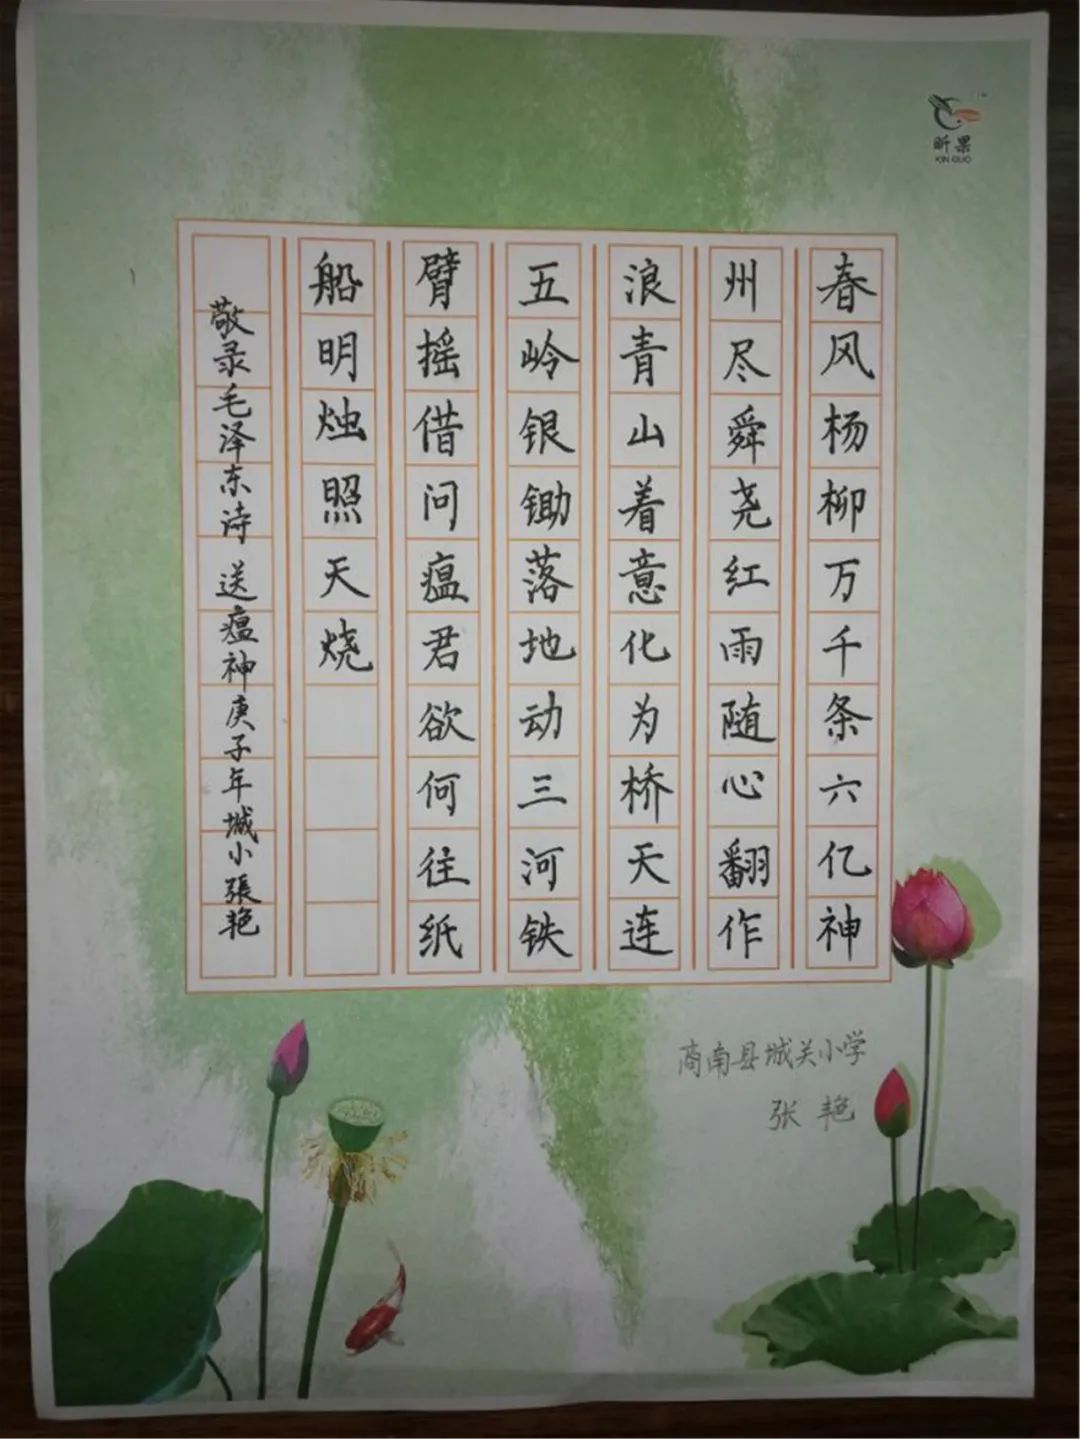 昕果
XIN GUO
春风杨柳万千条六亿神
州尽舜尧红雨随心翻作
浪青山着意化为桥天连
五岭银锄落地动三河铁
臂摇借问瘟君欲何往纸
船明烛照天烧
敬录毛泽东诗 送瘟神庚子年城小張艳
商南县城关小学
张艳